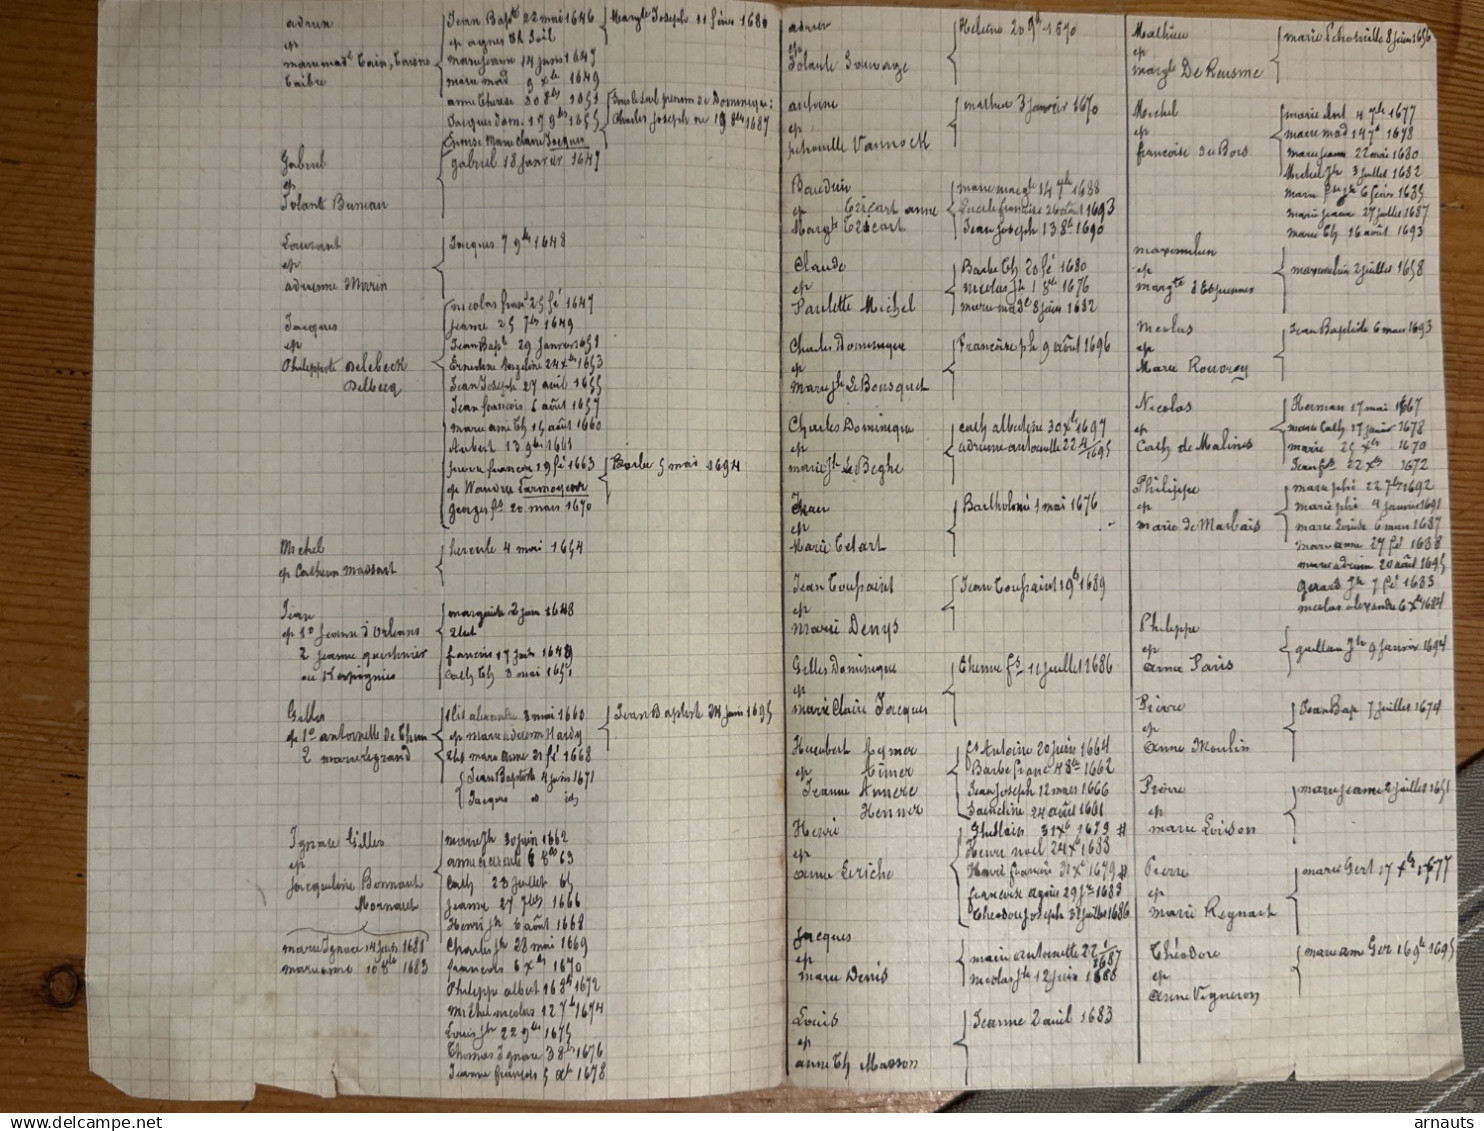 adrien
ep
mariemad^t Cain, Cairne
Caibre
Jean Bap^te 22 mai 1646
ep agnes
marie jeanne 14 juin 1647
marie mad 9 x^bre 1649
anne therese 30 8^bre 1651
Jacques dom. 17 9^bre 1655
Epouse Marie Claire Jacques
Joseph 11 fevr 1680
sous le seul prenom de Dominique:
Charles Joseph né 19 8^bre 1687
Gabriel
ep
Iolante
gabriel 18 janvier 1647
Laurant
ep
adrienne Marin
Jacques 7 9^bre 1648
Jacques
ep
Philippote Delebeck
Delbecq
nicolas fran^s 25 fé 1647
jeanne 25 7^bre 1649
Jean Bap^t 29 janvier 1651
Ernestine 24 x^bre 1653
Jean Joseph 27 avril 1655
Jean francois 6 août 1657
marie anne th 15 août 1660
hubert 13 9^bre 1661
pierre francois 19 fé 1663
ep Wandru Larmoyeur
georges f^s 20 mars 1670
Barbe 5 mai 1694
Michel
ep Catherine Massart
hercule 4 mai 1654
Jean
ep 1° Jeanne d'Orleans
2 jeanne quesnier
ou
marguerite 2 juin 1648
2 lict
francois 17 juin 1649
Cath th 3 mai 1651
Gilles
ep 1° antoinette de Thuin
2 marie legrand
1 lit alexandre 3 mai 1660
ep Hardy
2 lit marie anne 21 fé 1668
Jean Baptiste 4 juin 1671
Jacques id id
Jean Baptist 24 juin 1695
Ignace Gilles
ep
Jacqueline Bonnaut
Mornaut
marie Ignace 14 juin 1681
marie anne 10 8^bre 1683
marie Jh 30 juin 1662
anne hercule 6 8^bre 63
Cath 23 juillet 65
jeanne 27 7^bre 1666
Henri Jh 6 août 1668
Charles Jh 28 mai 1669
francois 6 x^bre 1670
Philippe albert 16 1672
Michel nicolas 12 7^b 1674
Louis Jh 22 9^bre 1675
Thomas Ignace 3 8^bre 1676
Jeanne françois 5 1678
adrien
ep
Iolante Sauvage
Helene 20 9^b 1670
antoine
ep
petronille Vannock
mathieu 3 janvier 1670
Bauduin
ep Tricart anne
Marg^te Tricart
marie marg^te 14 7^bre 1688
Lucile francoise 26 août 1693
Jean Joseph 13 8^b 1690
Claude
ep
Paulette Michel
Barbe th 20 fé 1680
nicolas Jh 1 8^bre 1676
marie mad^e 8 juin 1682
Charles Dominique
ep
marie Jh Le Bousquet
Francoise ph 9 août 1696
Charles Dominique
ep
marie Jh Le Beghe
cath albertine 30 x^bre 1697
adrienne antoinette 22 4/1695
Jean
ep
Marie Tetart
Bartholomé 1 mai 1676
Jean Toussaint
ep
Marie Denys
Jean Toussaint 19 1689
Gilles Dominique
ep
marie Claire Jacques
Etienne f^s 11 juillet 1686
Humbert Eymer
ep Aimer
Jeanne Annere
Henner
f^s Antoine 20 juin 1664
Barbe franc 4 8^bre 1662
Jean Joseph 12 mars 1666
Jacqueline 24 août 1661
Henri
ep
anne Leriche
Ghislain 31 x^b 1679 #
Henri noel 24 x^b 1688
Henri francois 31 x^b 1679 #
francoise agnes 29 1683
Theodore Joseph 31 juillet 1686
Jacques
ep
marie Denis
marie antoinette 22 1/1687
nicolas Jh 12 juin 1688
Louis
ep
anne th Masson
Jeanne 2 avril 1683
Mathieu
ep
marg^te De Reusme
marie Petronille 8 juin 1656
Michel
ep
francoise du Bois
marie ant 4 7^bre 1677
marie mad 14 7^b 1678
marie jeanne 22 mai 1680
Michel Jh 3 juillet 1682
marie Jh 6 fevr 1685
marie jeanne 27 juillet 1687
marie th 16 août 1693
maximilien
ep
marg^te d'Espiennes
maximilien 2 juillet 1658
Nicolas
ep
Marie Rouvroy
Jean Baptiste 6 mars 1693
Nicolas
ep
Cath de Malines
Herman 17 mai 1667
marie Cath 17 janvier 1678
marie 25 x^bre 1670
Jean f^s 22 x^bre 1672
Philippe
ep
marie de Marbais
marie phi 22 7^bre 1692
marie phi 4 janvier 1691
marie Louise 6 mars 1687
marie anne 27 fé 1688
marie adrienne 20 août 1695
gerard Jh 7 fé 1683
nicolas alexandre 6 x^bre 1684
Philippe
ep
anne Paris
guillau Jh 9 janvier 1694
Pierre
ep
Anne Moulin
Jean Bap 7 juillet 1674
Pierre
ep
marie Loison
marie jeanne 2 juillet 1651
Pierre
ep
Marie Regnart
marie Gert 17 x^bre 1677
Théodore
ep
Anne Vigneron
marie ann Ger 16 9^bre 1695
arnauts